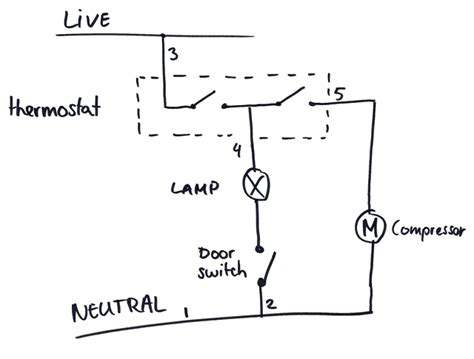 LiVE
3
thermostat
5
4
LAMP
M
Compressor
Door
switch
NEUTRAL
1
2